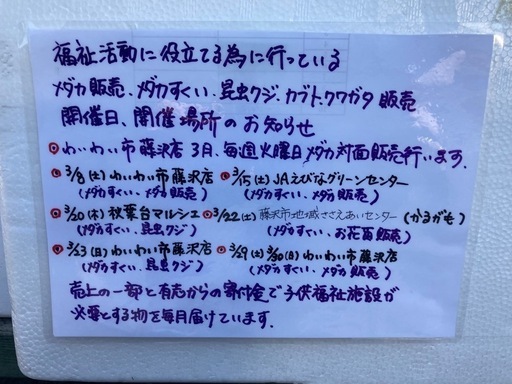 福祉活動に役立てる為に行っている
メダカ販売、メダカすくい、昆虫クジ、カブト、クワガタ 販売
開催日、開催場所のお知らせ
◎わいわい市藤沢店 3月、毎週火曜日メダカ対面販売行います。
◎3/8(土)わいわい市藤沢店 ◎3/15(土)JAえびなグリーンセンター
(メダカすくい、メダカ販売) (メダカすくい、メダカ販売)
◎3/20(木)秋葉台マルシェ ◎3/22(土)藤沢市地域ささえあいセンター(かるがも)
(メダカすくい、昆虫クジ) (メダカすくい、お花苗販売)
◎3/23(日)わいわい市藤沢店 ◎3/29(土)3/30(日)わいわい市藤沢店
(メダカすくい、昆虫クジ) (メダカすくい、メダカ販売)
売上の一部と有志からの寄付金で子供福祉施設が
必要とする物を毎月届けています.